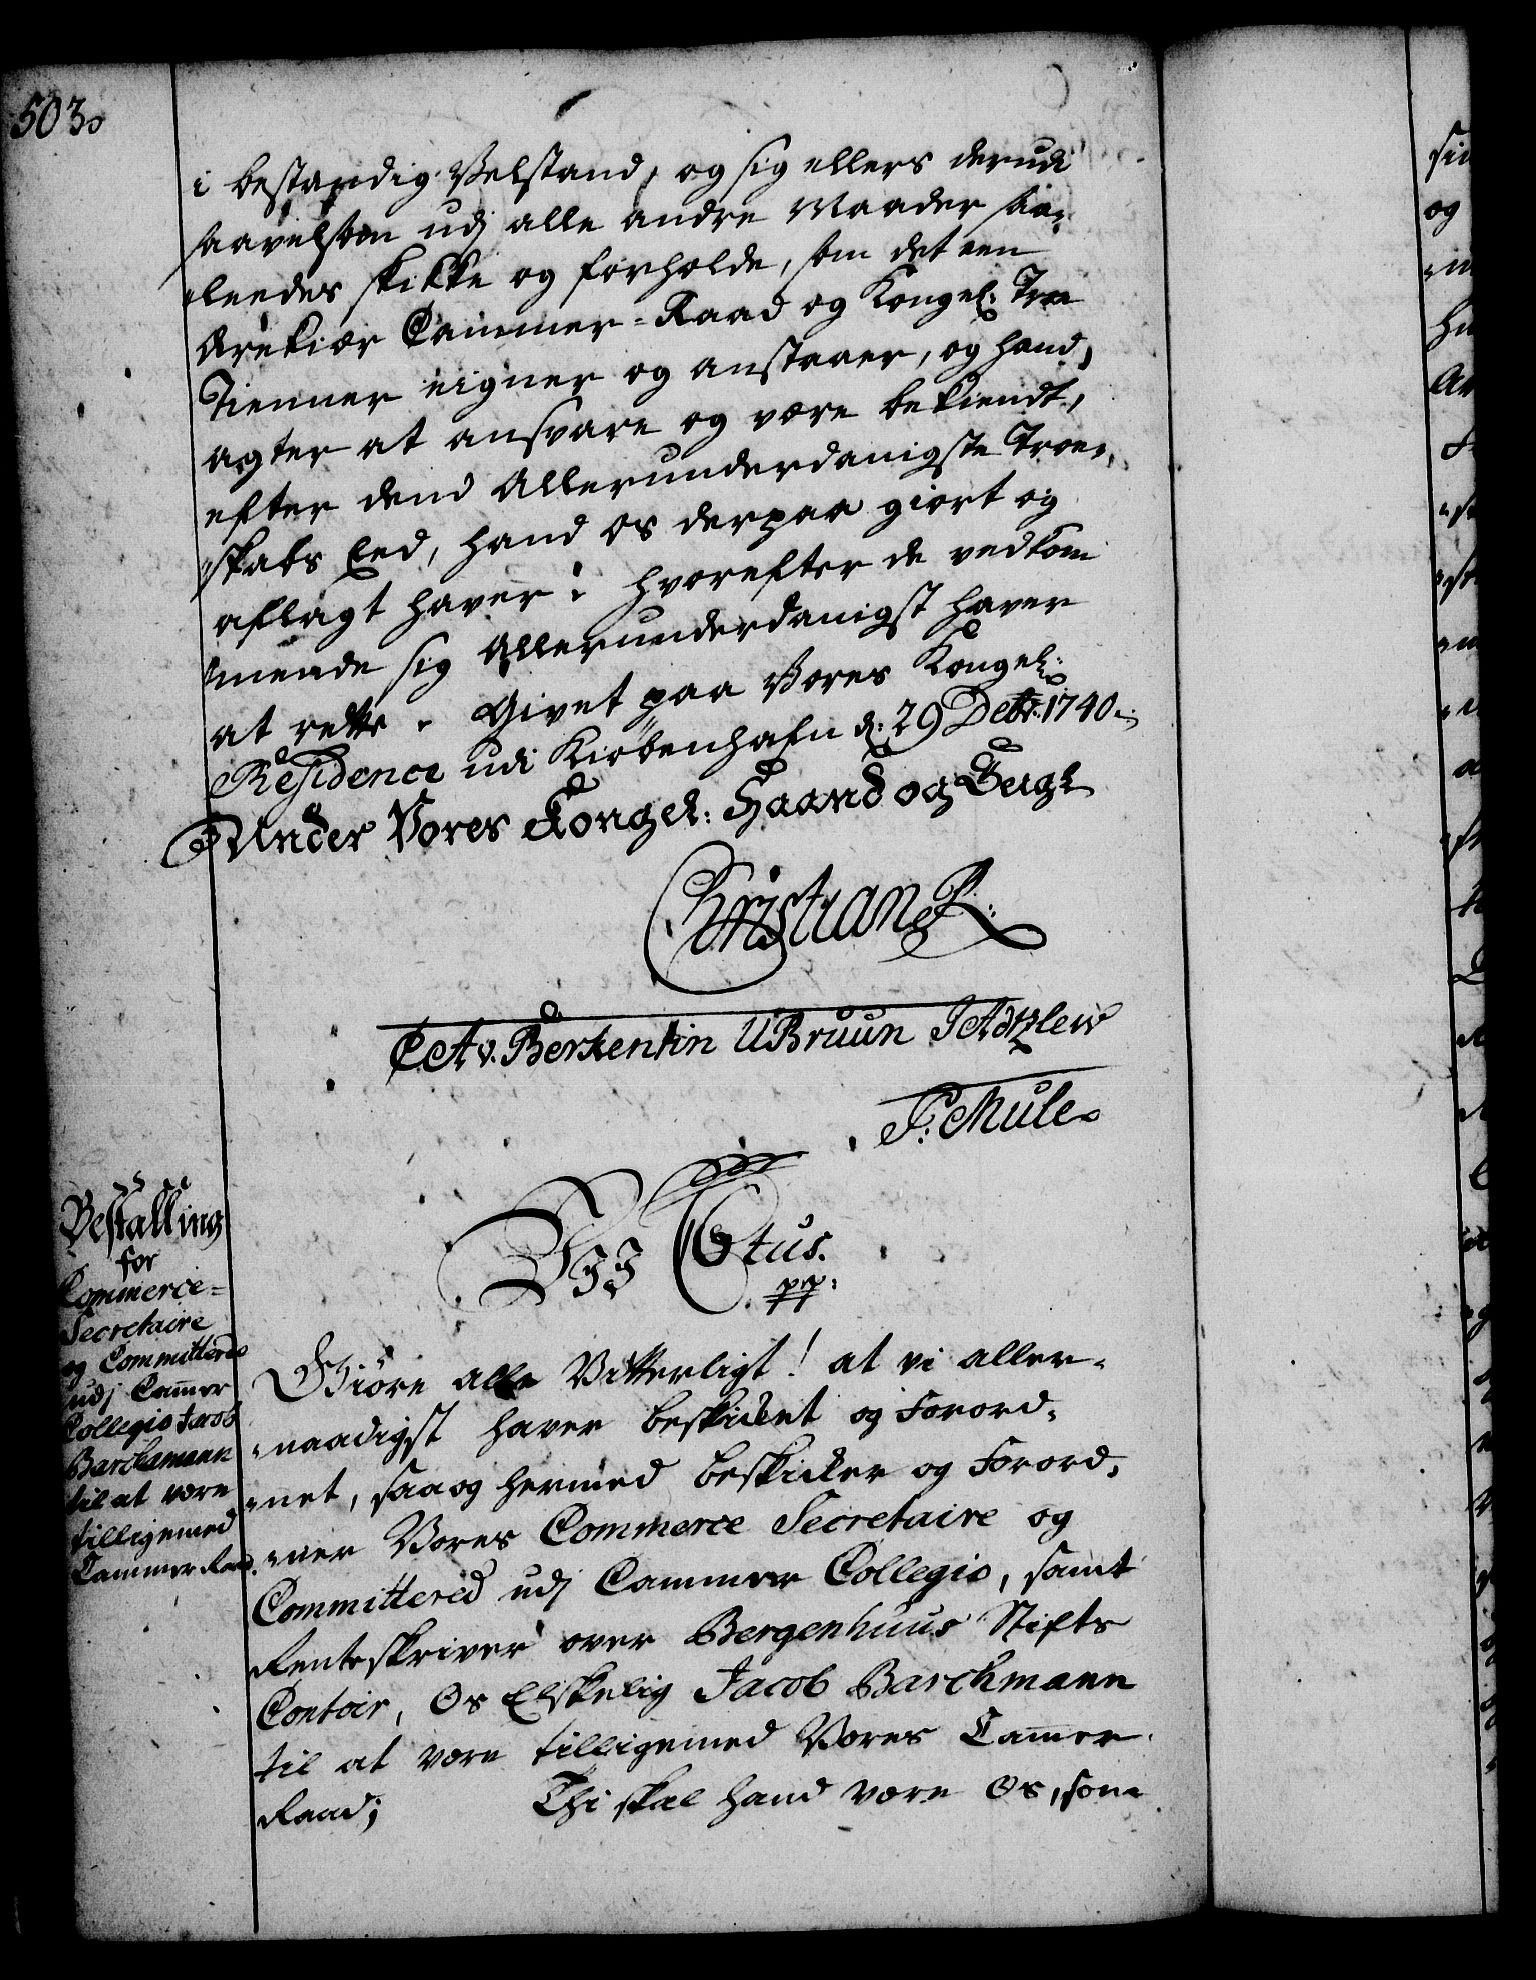 503.
i bestandig Velstand, og sig ellers derudi
saavelsom udj alle andre Maader saa„
„leedes skikke og forholde, som det een
Ærekiær Cammer-Raad og Kongel: Troe
Tienner eigner og anstaaer, og hand,
agter at ansvare og være bekiendt,
efter dend Allerunderdanigste Troe„
„skabs Eed, hand os derpaa giort og
aflagt haver: hvorefter de vedkom
„mende sig Allerunderdanigst haver
at rette. Givet paa Vores Kongel:
Residence udi Kiøbenhafn d: 29 Debr: 1740.
Under Vores Kongel: Haand og Seigl
Christian R:
C A v. Berkentin U Bruun
F: Mule.
Bestalling
for
Commerce-
Secretaire
og Committered
udj Cammer
Collegio Jacob
Barchmann
til at være
tilligemed
Cammer Raad.
Vij C 6tus.
pp:
Giöre alle Vitterligt! at vi aller„
„naadigst haver beskicket og Forord„
„net, saa og hermed beskicker og Forord„
„ner Vores Commerce Secretaire og
Committered udj Cammer Collegio, samt
Renteskriver over Bergenhuus Stifts
Contoir, Os Elskelig Jacob Barchmann
til at være tilligemed Vores Cammer
Raad; Thi skal hand være Os, som